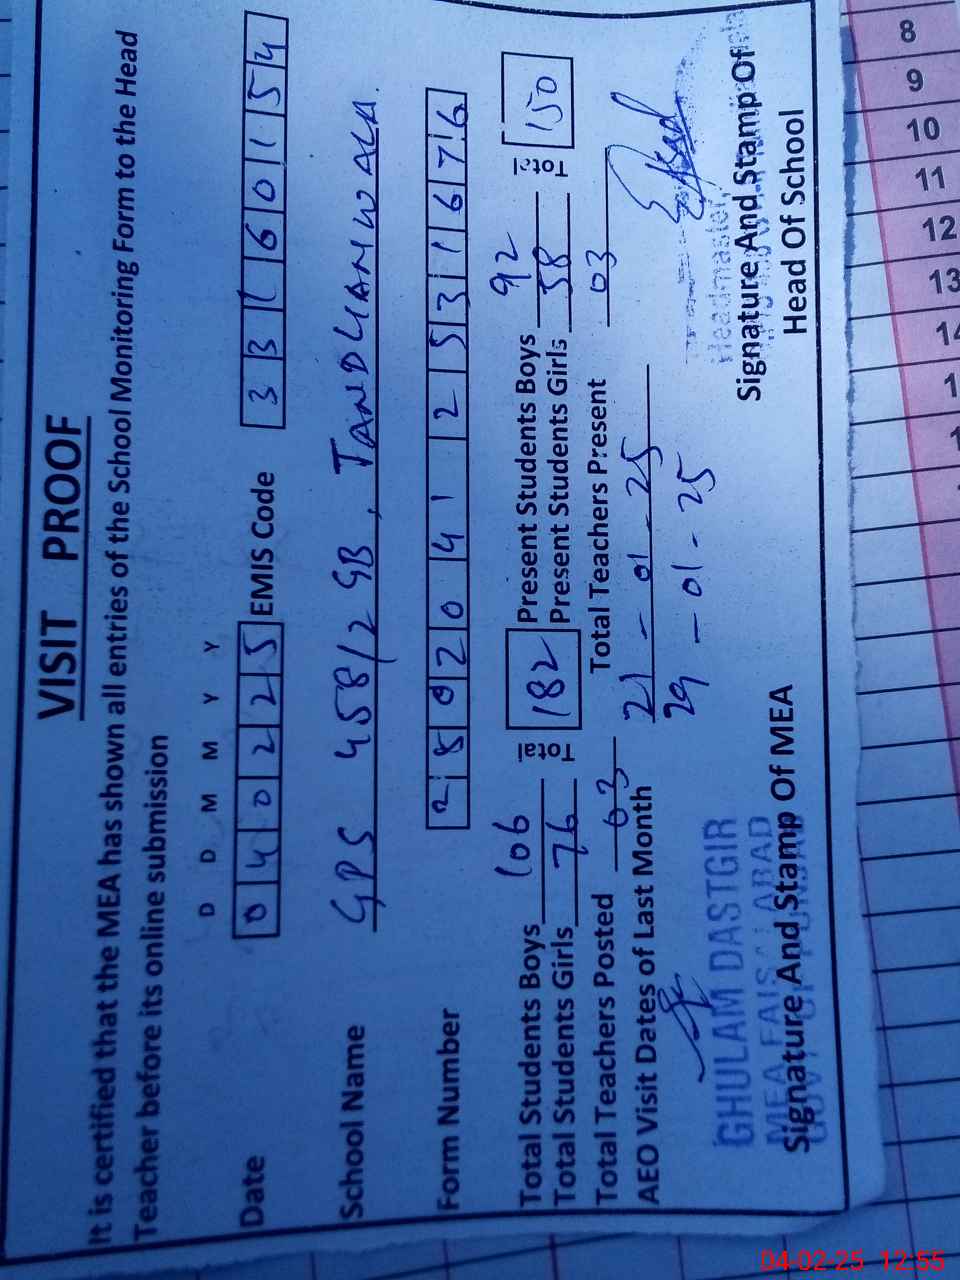 VISIT PROOF
It is certified that the MEA has shown all entries of the School Monitoring Form to the Head
Teacher before its online submission
D D M M Y Y
Date 040225 EMIS Code 33160154
School Name GPS 458/2 GB, TANDLIANWALA.
Form Number
Total Students Boys 106 Total 182 Present Students Boys 92 Total 150
Total Students Girls 76 Present Students Girls 58
Total Teachers Posted 03 Total Teachers Present 03
AEO Visit Dates of Last Month 21-01-25
29-01-25
GHULAM DASTGIR
MEA FAISALABAD
Headmaster
Signature And Stamp Of MEA
Signature And Stamp Of
Head Of School
8
9
10
11
12
13
04-02-25 12:55